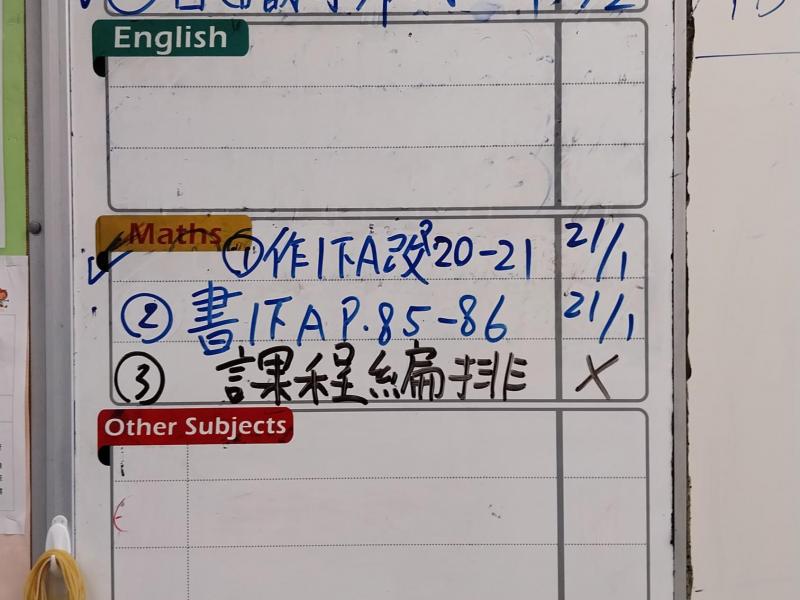 English
Maths
①作1下A改P20-21 21/1
②書1下A P.85-86 21/1
③ 課程編排 ×
Other Subjects